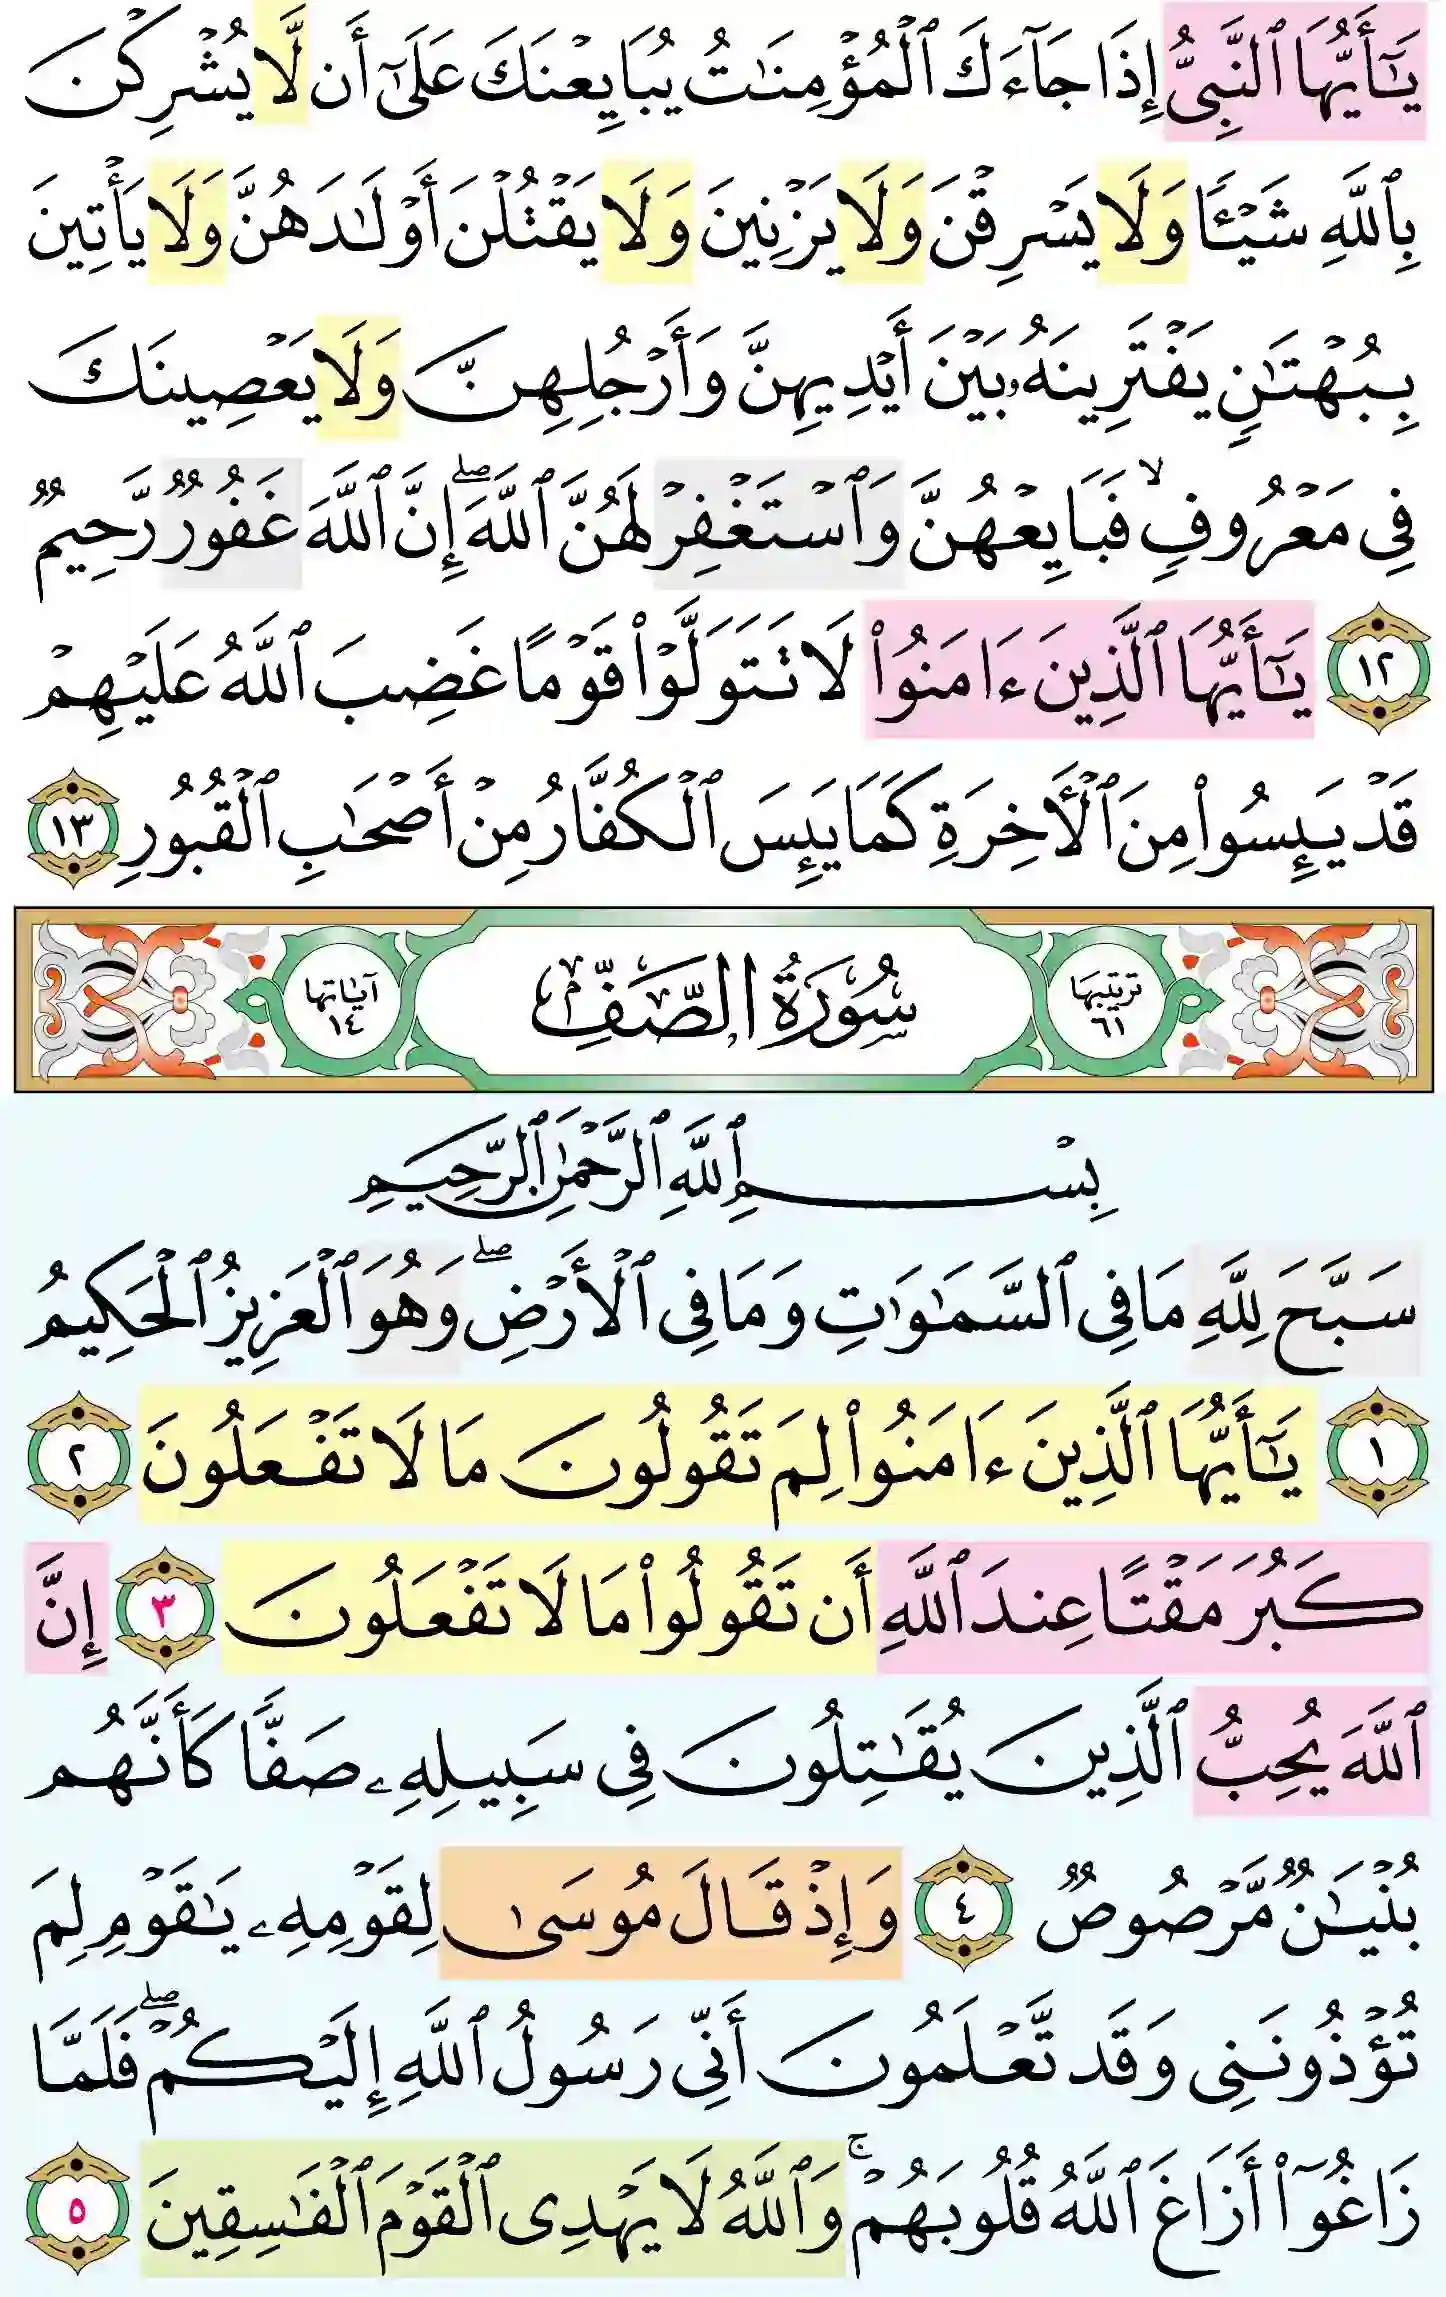 يَٰٓأَيُّهَا ٱلنَّبِىُّ إِذَا جَآءَكَ ٱلْمُؤْمِنَٰتُ يُبَايِعْنَكَ عَلَىٰٓ أَن لَّا يُشْرِكْنَ
بِٱللَّهِ شَيْـًٔا وَلَا يَسْرِقْنَ وَلَا يَزْنِينَ وَلَا يَقْتُلْنَ أَوْلَٰدَهُنَّ وَلَا يَأْتِينَ
بِبُهْتَٰنٍ يَفْتَرِينَهُۥ بَيْنَ أَيْدِيهِنَّ وَأَرْجُلِهِنَّ وَلَا يَعْصِينَكَ
فِى مَعْرُوفٍ ۙ فَبَايِعْهُنَّ وَٱسْتَغْفِرْ لَهُنَّ ٱللَّهَ ۖ إِنَّ ٱللَّهَ غَفُورٌ رَّحِيمٌ
١٢ يَٰٓأَيُّهَا ٱلَّذِينَ ءَامَنُوا۟ لَا تَتَوَلَّوْا۟ قَوْمًا غَضِبَ ٱللَّهُ عَلَيْهِمْ
قَدْ يَئِسُوا۟ مِنَ ٱلْأَخِرَةِ كَمَا يَئِسَ ٱلْكُفَّارُ مِنْ أَصْحَٰبِ ٱلْقُبُورِ ١٣
ترتيبها
٦١
سُورَةُ الصَّفِّ
آياتها
١٤
بِسْمِ ٱللَّهِ ٱلرَّحْمَٰنِ ٱلرَّحِيمِ
سَبَّحَ لِلَّهِ مَا فِى ٱلسَّمَٰوَٰتِ وَمَا فِى ٱلْأَرْضِ ۖ وَهُوَ ٱلْعَزِيزُ ٱلْحَكِيمُ
١ يَٰٓأَيُّهَا ٱلَّذِينَ ءَامَنُوا۟ لِمَ تَقُولُونَ مَا لَا تَفْعَلُونَ ٢
كَبُرَ مَقْتًا عِندَ ٱللَّهِ أَن تَقُولُوا۟ مَا لَا تَفْعَلُونَ ٣ إِنَّ
ٱللَّهَ يُحِبُّ ٱلَّذِينَ يُقَٰتِلُونَ فِى سَبِيلِهِۦ صَفًّا كَأَنَّهُم
بُنْيَٰنٌ مَّرْصُوصٌ ٤ وَإِذْ قَالَ مُوسَىٰ لِقَوْمِهِۦ يَٰقَوْمِ لِمَ
تُؤْذُونَنِى وَقَد تَّعْلَمُونَ أَنِّى رَسُولُ ٱللَّهِ إِلَيْكُمْ ۖ فَلَمَّا
زَاغُوٓا۟ أَزَاغَ ٱللَّهُ قُلُوبَهُمْ ۚ وَٱللَّهُ لَا يَهْدِى ٱلْقَوْمَ ٱلْفَٰسِقِينَ ٥